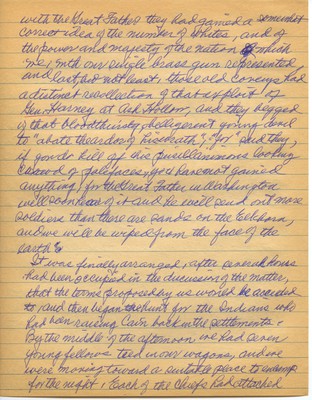 with the Great Father they had gained a somewhat
correct idea of the number of whites, and of
the power and majesty of the nation which
we, with our single brass gun represented,
and last but not least, those old coveys had
a distinct recollection of that exploit of
Gen Harney at Ash Hollow, and they begged
of that bloodthirsty belligerent young soul
to "abate the ardor of his wrath", "for" said they,
if you do kill off this pusillanimous looking
crowd of palefaces, you have not gained
anything, for the Great Father in Washington
will soon hear of it and he will send out more
soldiers than there are sands on the Elkhorn,
and we will be wiped from the face of the
earth".
It was finally arranged, after several hours
had been occupied in the discussion of the matter,
that the terms proposed by us would be acceded
to, and then began the hunt for the Indians who
had been raising Cain back in the settlements.
By the middle of the afternoon we had seven
young fellows tied in our wagons, and we
were moving toward a suitable place to encamp
for the night. Each of the Chiefs had attached